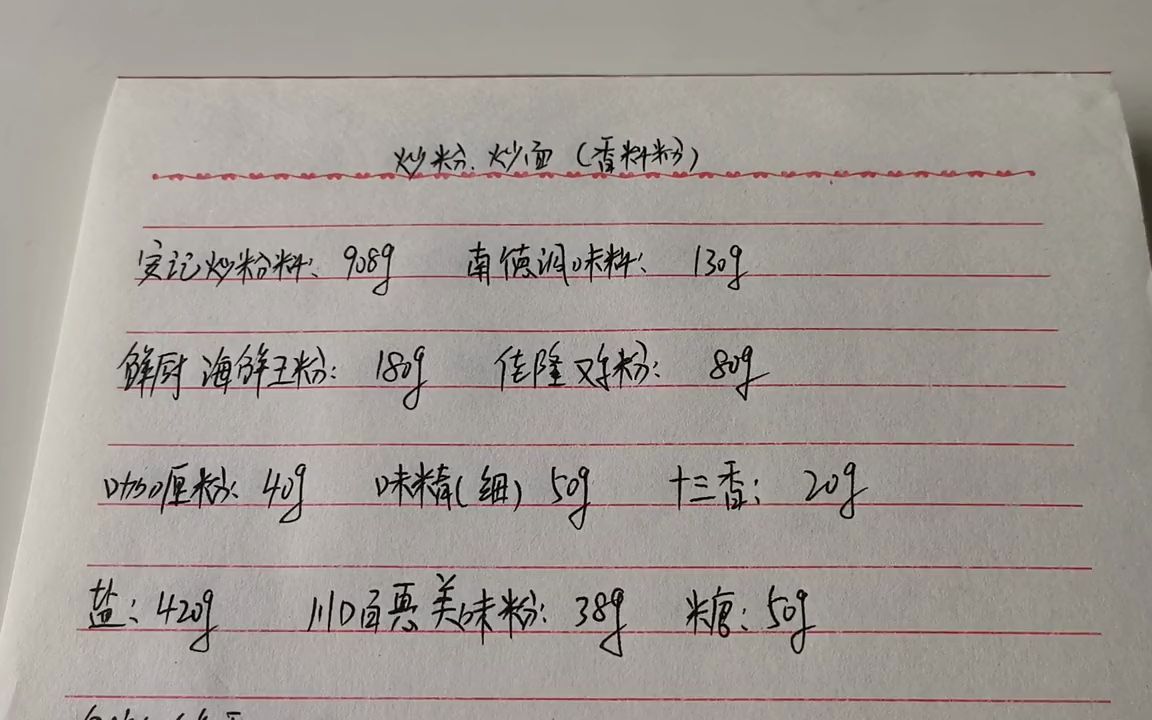 炒粉.炒面(香料粉)
安记炒粉料: 908g 南德调味料: 130g
鲜厨 海鲜王粉: 180g 佳隆 鸡粉: 80g
咖喱粉: 40g 味精(细) 50g 十三香: 20g
盐: 420g 川口百惠 美味粉: 38g 糖: 50g